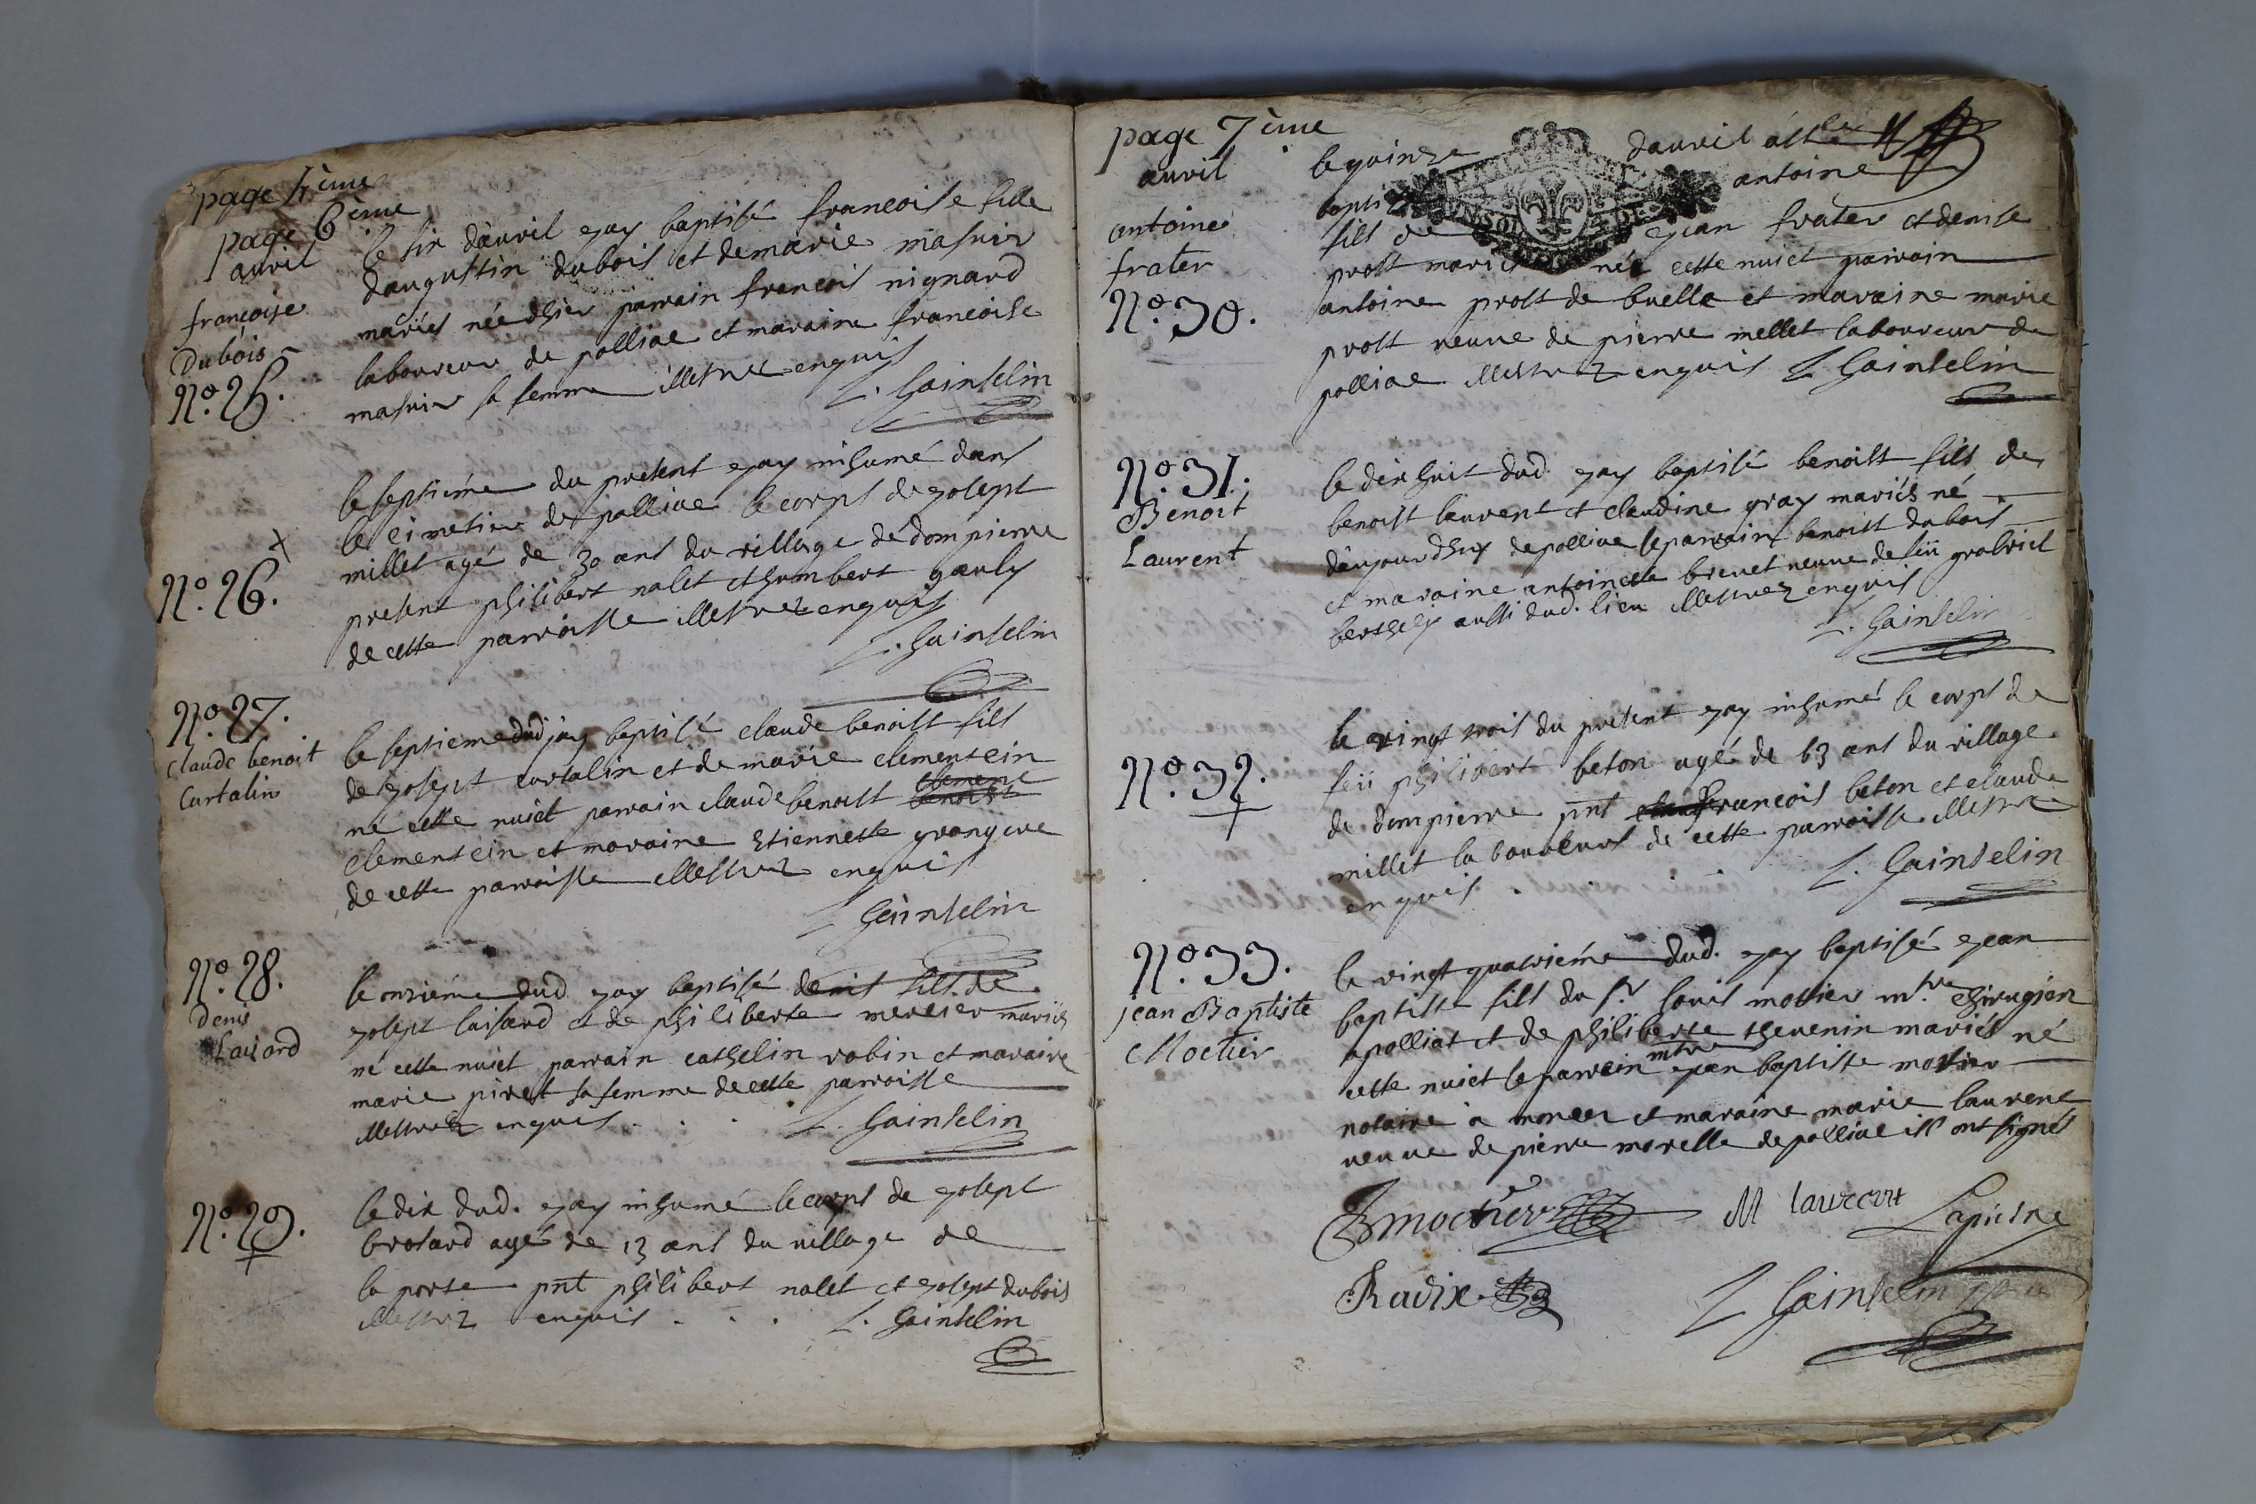 page 6ème
avril
francoise
Dubois
No. 25.
le six davril ejay baptisé francoise fille
daugustin dubois et de marie masuir
mariés née dhier parrain francois nignard
laboureur de polliac et maraine francoise
masuir sa femme illettrez enquis
L. Gainselin
No. 26.
le septiéme du present ejay inhumé dans
le cimetiere de polliac le corps de josept
millet agé de 30 ans du village de dompierre
present philibert nalet et humbert gauly
de cette parroisse illettrez enquis
L. Gainselin
No. 27.
Claude benoit
Curtalin
le septieme dud jay baptisé claude benoist fils
de josept curtalin et de marie clementcin
né cette nuict parrain claude benoist
clementcin et maraine Etiennette grangere
de cette parroisse illettrez enquis
L Gainselin
No. 28.
Denis
Laisard
le onziéme dud ejay baptisé denis fils de
josept laisard et de philiberte mercier mariés
né cette nuict parrain cathelin robin et maraine
marie piret sa femme de cette parroisse
illettrez enquis . . . L. Gainselin
No. 29.
le dix dud. ejay inhumé le corps de josept
brosard agé de 13 ans du village de
la porte pnt philibert nalet et josept dubois
illettrez enquis . . . L. Gainselin
page 7ème
avril
antoine
frater
No. 30.
le quinze davril
bapti antoine
fils de jean frater et denise
prost mariés née cette nuict parrain
antoine prost de buelle et maraine marie
prost veuve de pierre mellet laboureur de
polliac illettrez enquis L. Gainselin
No. 31.
Benoit
Laurent
le dixhuit dud. ejay baptisé benoist fils de
benoist laurent et claudine gray mariés né
daujourdhuy de polliac le parrain benoist dubois
et maraine antoinette brevet veuve de feü grabriel
berthely aussi dud. lieu illettrez enquis
L. Gainselin
No. 32.
le vingt trois du present ejay inhumé le corps de
feü philibert beton agé de 63 ans du village
de dompierre pnt francois beton et claude
millet laboureurs de cette parroisse illettrez
enquis L. Gainselin
No. 33.
jean Baptiste
Moctier
le vingt quatriéme dud. ejay baptisé jean
baptiste fils du sr. louis mottier mtre chirugien
apolliat et de philiberte thevenin mariés né
cette nuict le parrain mtre jean baptiste mottier
notaire a et maraine marie laurent
veuve de pierre morelle de polliac ils ont signés
Bmoctier M laurent Lapierre
Radix
L Gainselin